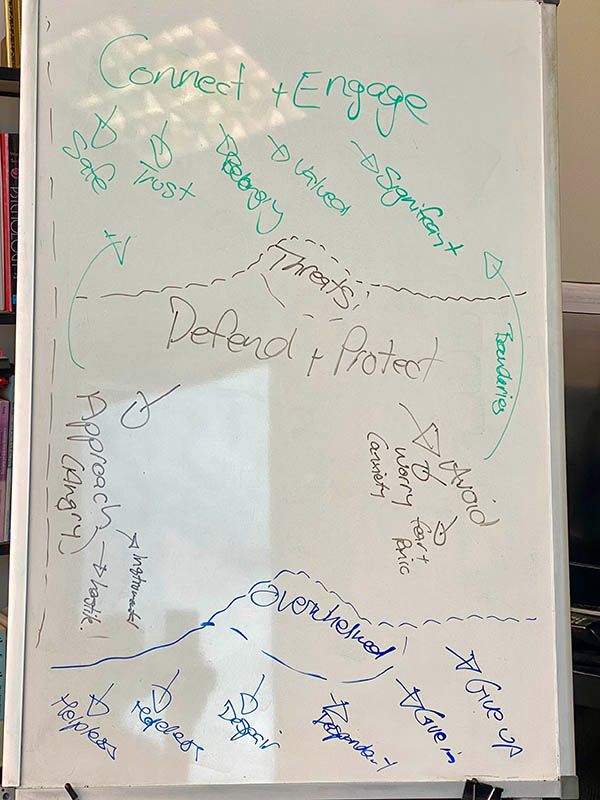 Connect + Engage
Safe
Trust
Belonging
Valued
Significant
Threats
Defend + Protect
Boundaries
Approach
(Angry)
Instrumental
Hostile!
Avoid
worry
(anxiety
fear +
Panic
Overwhelmed
Helpless
Hopeless
Despair
Despondent
Give in
Give up